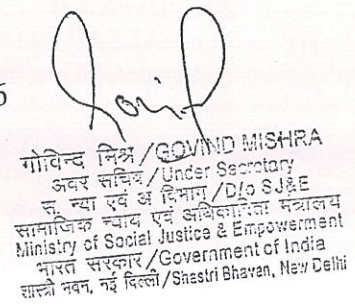 5
गोविन्द मिश्र/GOVIND MISHRA
अवर सचिव/Under Secretary
सा. न्या एवं अ विभाग/D/o SJ&E
सामाजिक न्याय एवं अधिकारिता मंत्रालय
Ministry of Social Justice & Empowerment
भारत सरकार/Government of India
शास्त्री भवन, नई दिल्ली/Shastri Bhavan, New Delhi